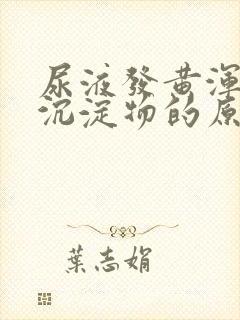 尿液發黃渾
沉淀物的原
葉志娟